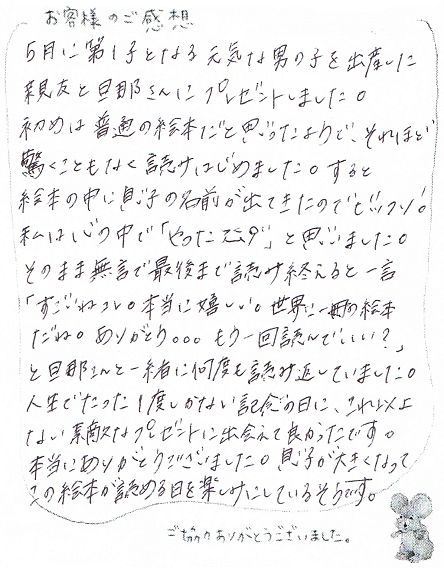 お客様のご感想
5月に第1子となる元気な男の子を出産した
親友と旦那さんにプレゼントしました。
初めは普通の絵本だと思ったようで、それほど
驚くこともなく読みはじめました。すると
絵本の中に息子の名前が出てきたのでビックリ!
私は心の中で「やったるで」と思いました。
そのまま無言で最後まで読み終えると一言
「すごいねコレ。本当に嬉しい。世界に一冊の絵本
だね。ありがとう。。。もう一回読んでいい?」
と旦那さんと一緒に何度も読み返していました。
人生でたった1度しかない記念の日に、これ以上
ない素敵なプレゼントに出会えて良かったです。
本当にありがとうございました。息子が大きくなって
この絵本が読める日を楽しみにしているそうです。
ご協力ありがとうございました。